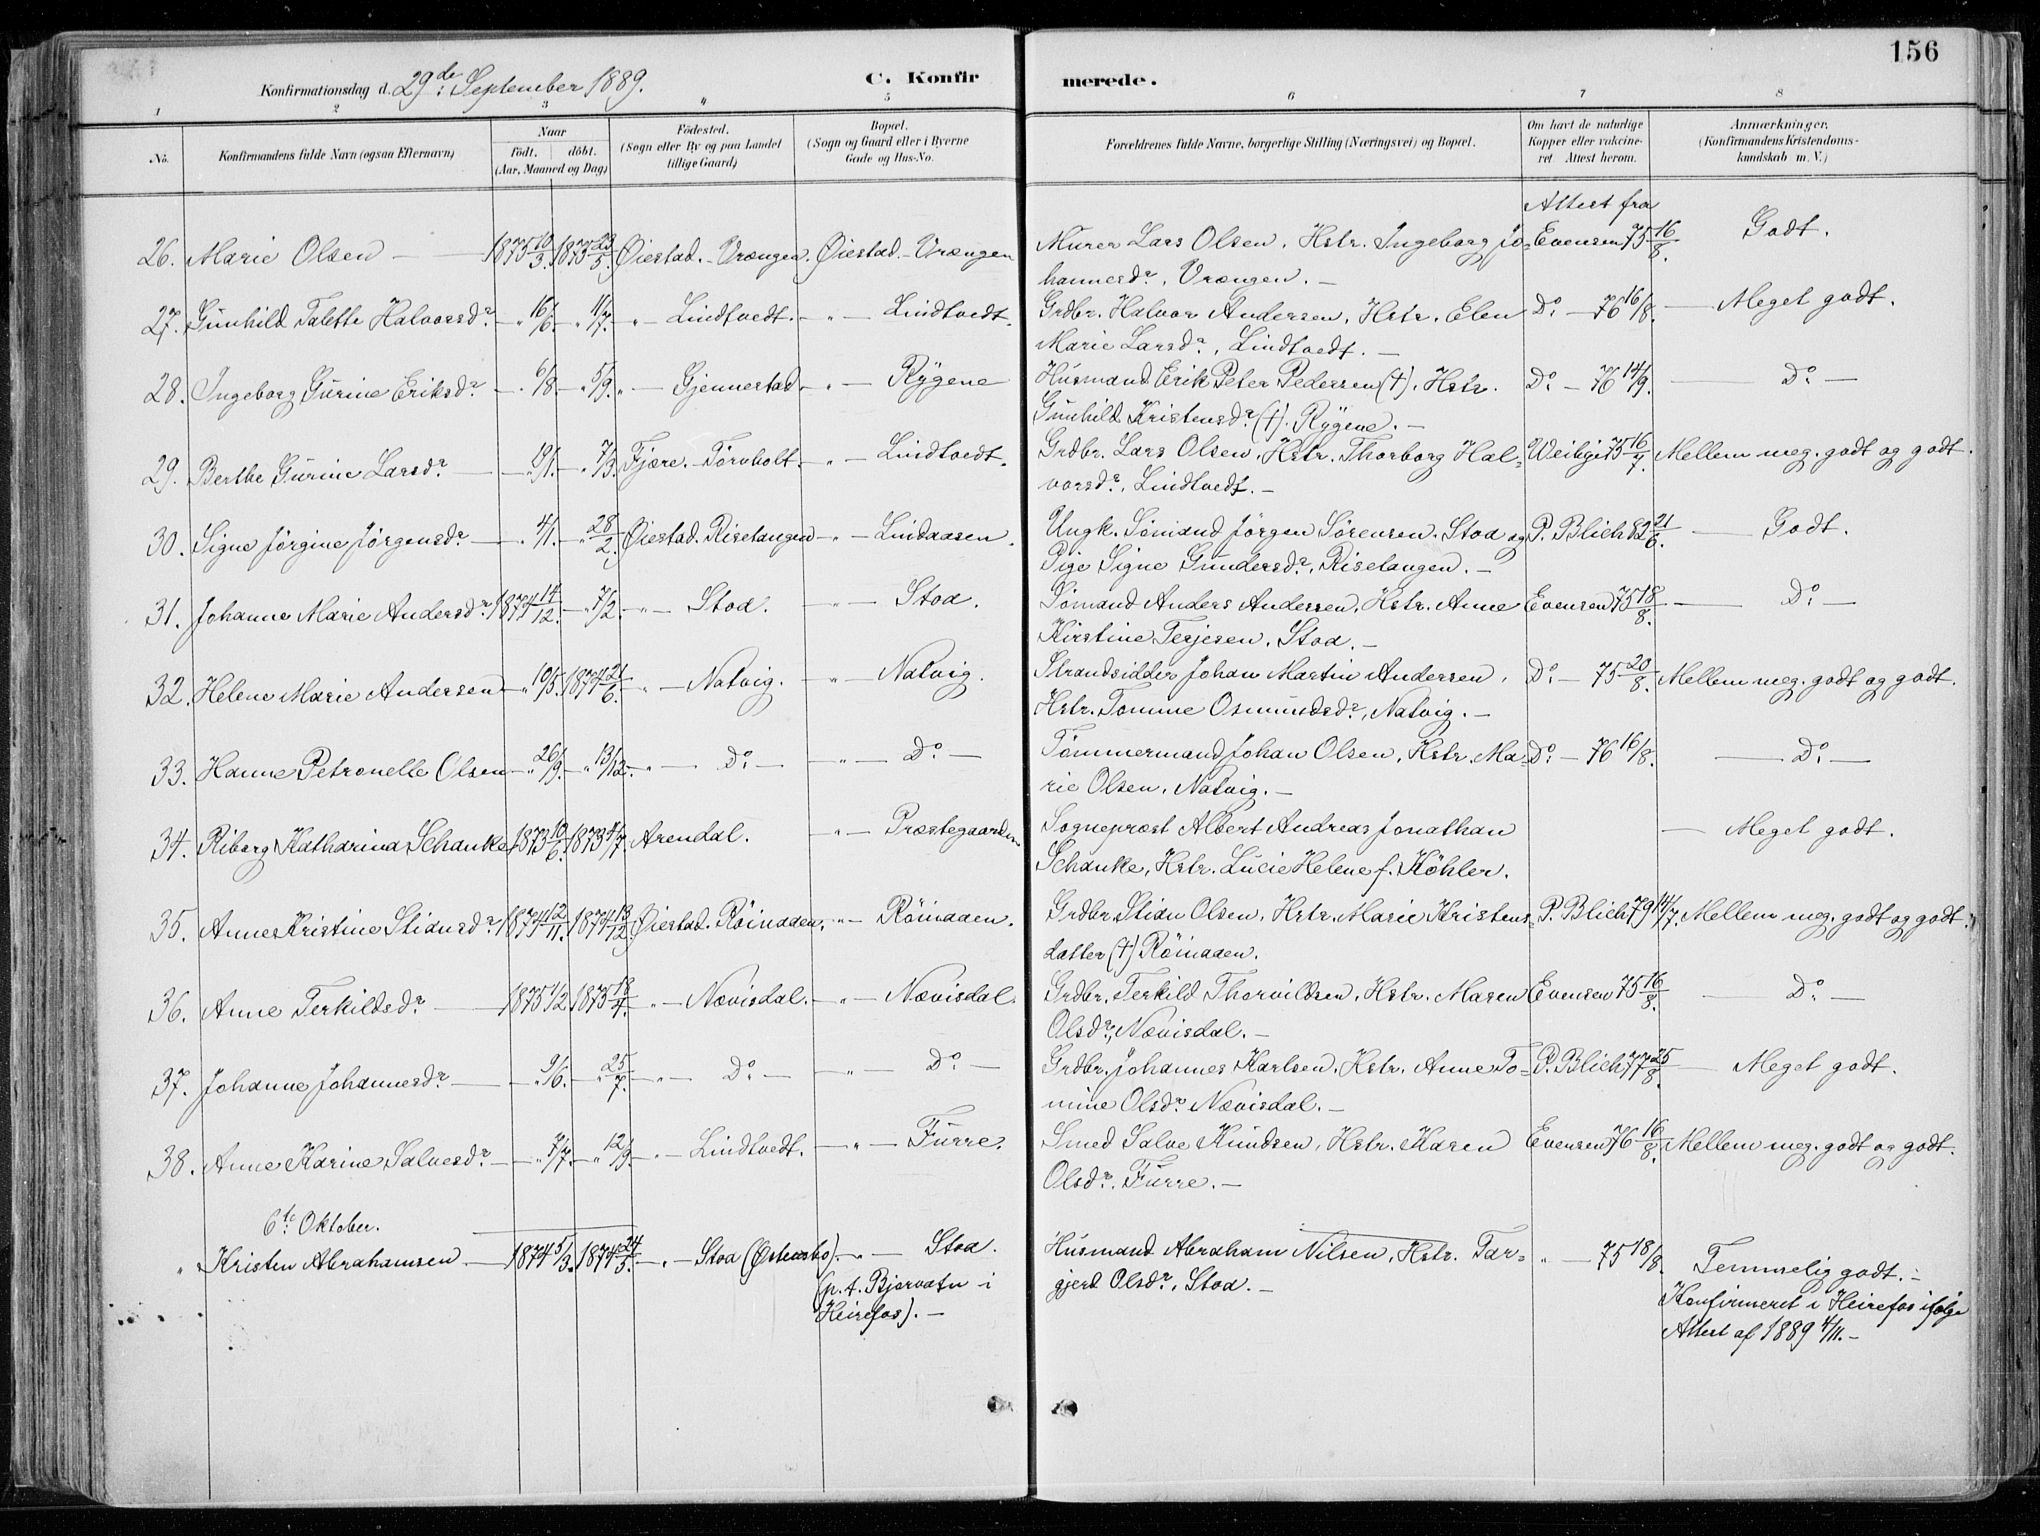 156
Konfirmationsdag d. 29de September 1889. C. Konfirmerede.
1 2 3 4 5 6 7 8
No. Konfirmandens fulde Navn (ogsaa Efternavn) Naar født, døbt. (Aar, Maaned og Dag) Fødested. (Sogn eller By og paa Landet tillige Gaard) Bopæl. (Sogn og Gaard eller i Byerne Gade og Hus-No. Forældrenes fulde Navne, borgerlige Stilling (Næringsvei) og Bopæl. Om havt de naturlige Kopper eller vaccineret. Attest herom. Anmærkninger, (Konfirmandens Kristendomskundskab m. V.)
Attest fra
26. Marie Olsen — 1875 10/3. 1875 23/5. Øiestad. - Vrængen. Øiestad. - Vrængen Murer Lars Olsen, Hstr. Ingeborg Jo- Evensen 75 16/8. Godt.
hannesdr, Vrængen. —
27. Gunhild Talette Halvorsdr. — " 16/6. — " 11/7. " — Lindtvedt. — " — Lindtvedt. Grdbr. Halvor Andersen, Hstr. Elen Do. — 76 16/8. — Meget godt.
Marie Larsdr, Lindtvedt. —
28. Ingeborg Gurine Eriksdr. — " 6/8. — " 5/9. " — Gjennestad — " — Rygene Husmand Erik Peter Pedersen (†), Hstr. Do. — 76 14/9. — Do. —
Gunhild Kristensdr (†). Rygene. —
29. Berthe Gurine Larsdr. — " 19/1. — " 7/3. Fjære. - Törvholt. — " — Lindtvedt. Grdbr. Lars Olsen, Hstr. Thorborg Hal- Weibye 75 16/7. Mellem meg. godt og godt.
vorsdr, Lindtvedt. —
30. Signe Jörgine Jörgensdr. — " 4/1. — " 28/2. Øiestad. Riselangen — " — Lindaasen. Ungk. Sömand Jörgen Sörensen. Stoa og P. Blich 82 21/6. — Godt.
Pige Signe Gundersdr, Riselangen. —
31. Johanne Marie Andersdr. 1874 14/12. — " 7/2. — " — Stoa. — " — Stoa. Sömand Anders Andersen, Hstr. Anne Evensen 75 18/8. — Do. —
Kirstine Terjesen. Stoa. —
32. Helene Marie Andersen — " 10/5. 1874 21/6. — " — Natvig. — " — Natvig. Strandsidder Johan Martin Andersen, Do. — 75 20/8. Mellem meg. godt og godt.
Hstr. Tomine Osmundsdr, Natvig. —
33. Hanne Petronelle Olsen — " 26/9. — " 13/12. — " — Do. — — " — Do. — Tömmermand Johan Olsen, Hstr. Ma- Do. — 76 16/8. — Do. —
rie Olsen, Natvig. —
34. Riborg Katharina Schanke 1873 10/6. 1873 4/7. Arendal. — " — Præstegaarden Sognepræst Albert Andreas Jonathan — Meget godt.
Schanke, Hstr. Lucie Helene f. Köhler.
35. Anne Kristine Stiansdr. 1874 12/11. 1874 13/12. Øiestad. Röinaaen. — " — Röinaaen. Grdbr. Stian Olsen, Hstr. Marie Kristens- P. Blich 79 14/7. Mellem meg. godt og godt.
datter (†) Röinaaen.
36. Anne Terkildsdr. — 1875 1/2. 1875 18/4. " — Nævisdal. — " — Nævisdal. Grdbr. Terkild Thorvildsen, Hstr. Maren Evensen 75 16/8. — Do. —
Olsdr, Nævisdal. —
37. Johanne Johannesdr. — " 9/6. — " 25/7. — " — Do. — — " — Do. — Grdbr. Johannes Karlsen, Hstr. Anne To- P. Blich 77 25/8. — Meget godt.
mine Olsdr. Nævisdal. —
38. Anne Karine Salvesdr. — " 7/7. — " 12/9. — " — Lindtvedt. — " — Furre. Smed Salve Knudsen, Hstr. Karen Evensen 76 16/8. Mellem meg. godt og godt.
Olsdr. Furre. —
6te Oktober.
" Kristen Abrahamsen — 1874 5/3. 1874 24/5. — " — Stoa (Østensbo). — " — Stoa. Husmand Abraham Nilsen, Hstr. Tar- " — 75 18/8. Temmelig godt. —
(p. t. Bjorvatn i gjerd Olsdr, Stoa. — Konfirmeret i Heirefos ifølge
Heirefos). — Attest af 1889 4/11. —